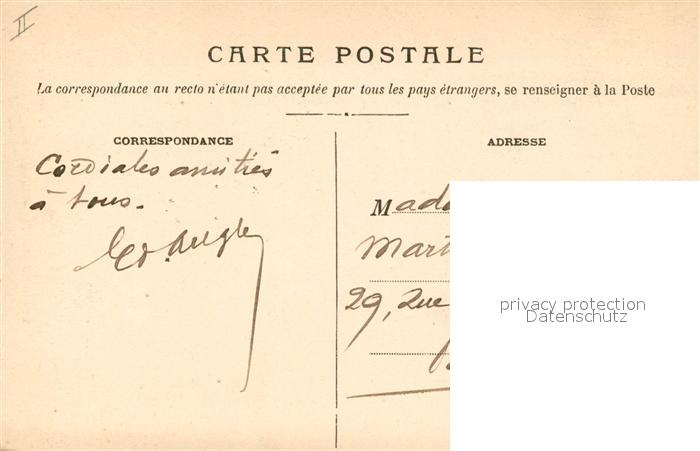 II
CARTE POSTALE
La correspondance au recto n'étant pas acceptée par tous les pays étrangers, se renseigner à la Poste
CORRESPONDANCE
ADRESSE
Cordiales amitiés
à tous.
Mada
Mart
29, Rue
privacy protection
Datenschutz